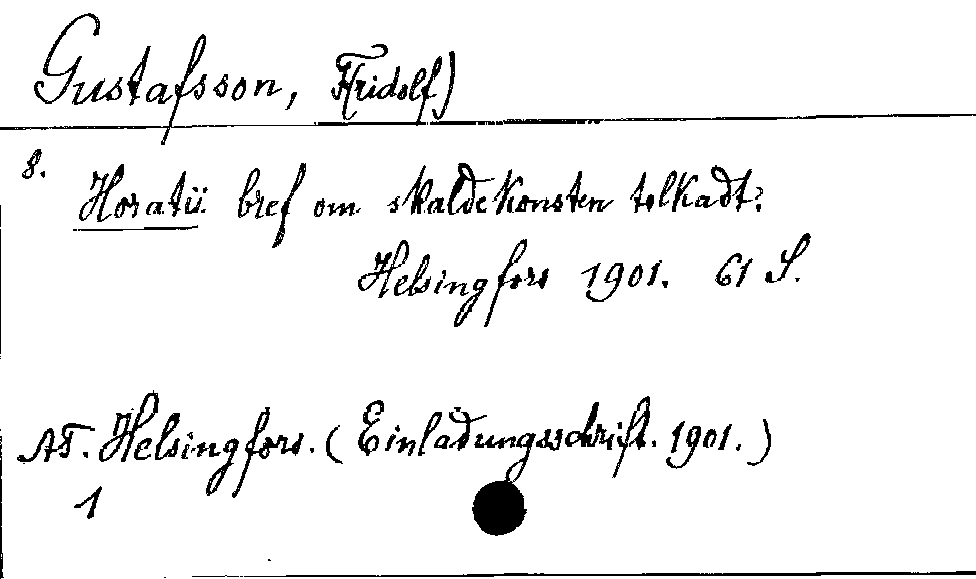 Gustafsson, F(ridolf)
8.
Horatii bref om skaldekonsten tolkadt.
Helsingfors 1901. 61 S.
AT. Helsingfors. (Einladungsschrift. 1901.)
1